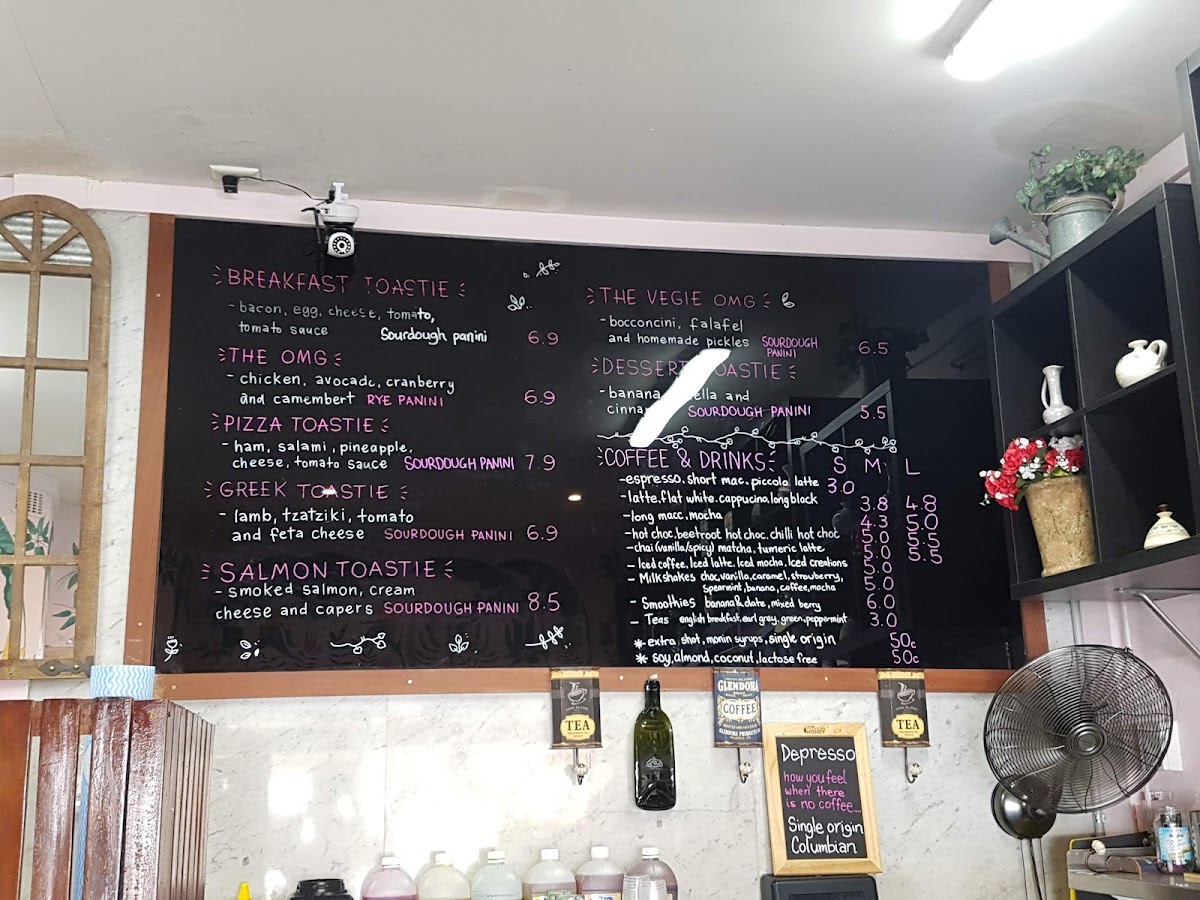 BREAKFAST TOASTIE
- bacon, egg, cheese, tomato,
tomato sauce Sourdough panini 6.9
THE OMG
- chicken, avocado, cranberry
and camembert RYE PANINI 6.9
PIZZA TOASTIE
- ham, salami, pineapple,
cheese, tomato sauce SOURDOUGH PANINI 7.9
GREEK TOASTIE
- lamb, tzatziki, tomato
and feta cheese SOURDOUGH PANINI 6.9
SALMON TOASTIE
- smoked salmon, cream
cheese and capers SOURDOUGH PANINI 8.5
THE VEGIE OMG
- bocconcini, falafel
and homemade pickles SOURDOUGH
PANINI 6.5
DESSERT TOASTIE
- banana and
SOURDOUGH PANINI 5.5
COFFEE & DRINKS S M L
- espresso, short mac, piccolo latte 3.0
- latte, flat white, cappucino, long black 3.8 4.8
- long macc, mocha 4.3 5.0
- hot choc, beetroot hot choc, chilli hot choc 5.0 5.5
- chai (vanilla/spicy) matcha, tumeric latte 5.0 5.5
- Iced coffee, Iced latte, Iced mocha, Iced creations 5.0
- Milkshakes choc, varilla, caramel, strawberry, 5.0
spearmint, banana, coffee, mocha
- Smoothies banana & date, mixed berry 6.0
- Teas english breakfast, earl grey, green, peppermint 3.0
* extra shot, monin syrups, single origin 50c
* soy, almond, coconut, lactose free 50c
TEA
GLENDORA
COFFEE
GLENDORA PRODUCTS
TEA
Depresso
how you feel
when there
is no coffee....
Single origin
Columbian